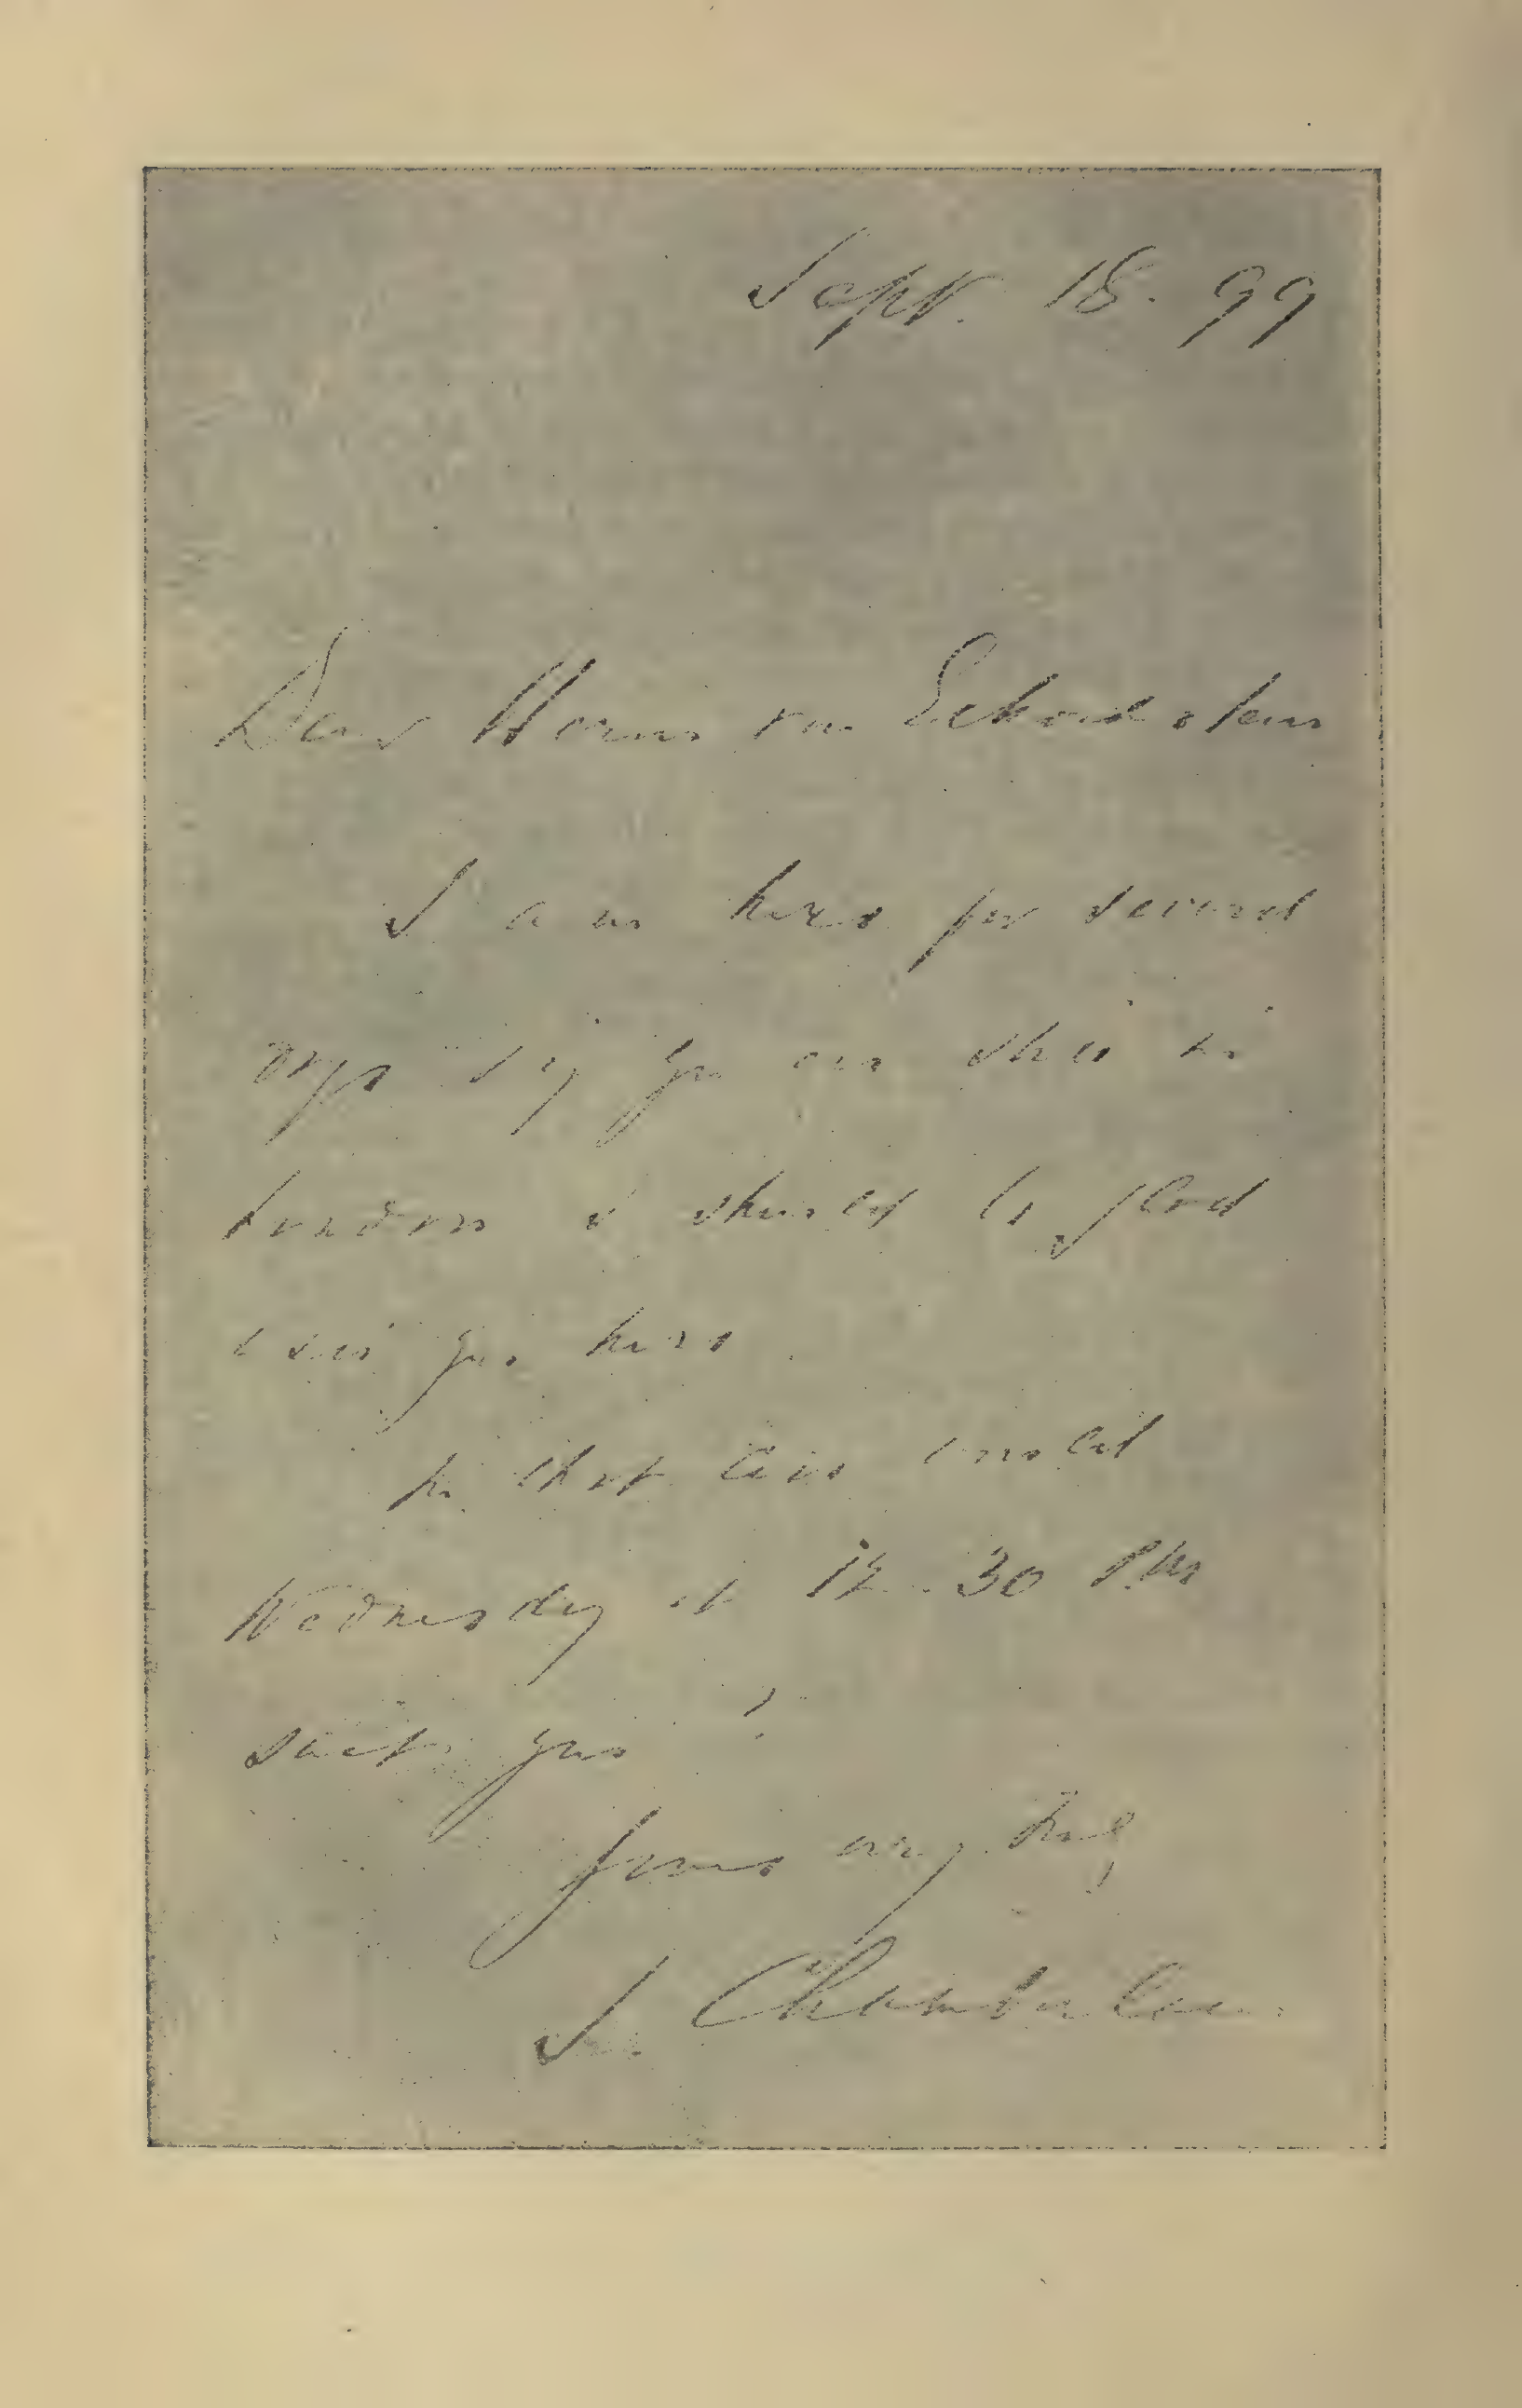 Sept. 18. 99
Dear Baron von Eckardstein
I am here for several
days & if you are still in
London should be glad
to see you here.
In that case would
Wednesday at 12.30 P.M
suit you?
Yours very truly
J. Chamberlain